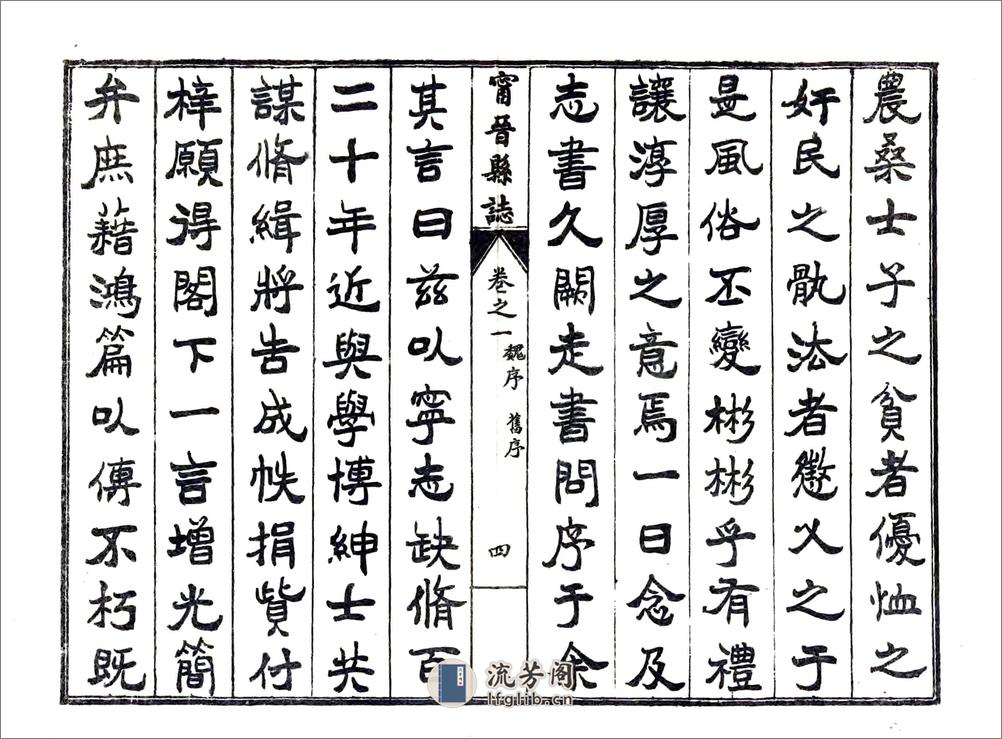 農桑士子之貧者優恤之
奸民之骩法者懲乂之于
是風俗丕變彬彬乎有禮
讓淳厚之意焉一日念及
志書久闕走書問序于余
甯晉縣誌
卷之一
魏序 舊序
四
其言曰茲以寧志缺脩百
二十年近與學博紳士共
謀脩緝將告成帙捐貲付
梓願得閣下一言增光簡
弁庶藉鴻篇以傳不朽既
流芳阁
lfglib.cn